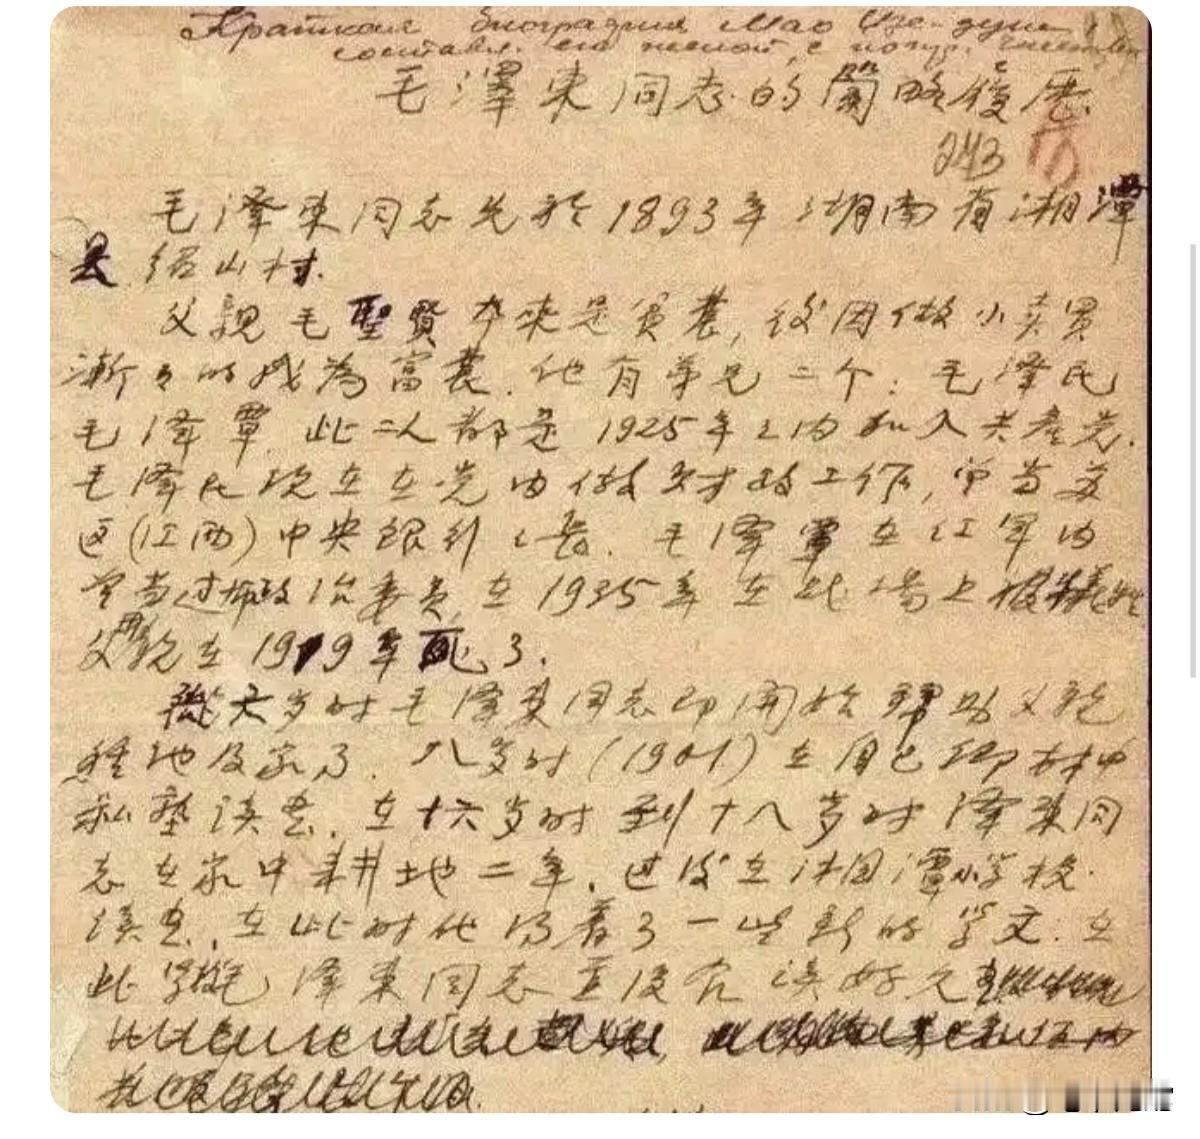 Краткая биография Мао Цзе-дуна
составл. его женой, с
毛澤東同志的簡略復历.
243
毛泽東同志先於1893年湖南省湘潭
县 绍山村.
父親毛聖賢本来是貧農, 後因做小卖買
漸々的成為富農. 他有弟兄二个: 毛泽民
毛泽覃 此二人都是1925年之内加入共产党.
毛泽民现在在党内做财政工作, 曾当苏
区(江西)中央银行々長. 毛泽覃在红军内
曾当过师政治委員, 在1935年在战场上
父親在1919年死了.
從六岁时毛泽東同志即開始帮助父親
種地及家了. 八岁时(1901)在自己鄉村中
私塾讀書. 在十六岁时到十八岁时泽東同
志在家中耕地二年. 过後在湘潭小学校
讀書. 在此时他得着了一些新的学文. 在
此学校毛泽東同志並没有讀好久